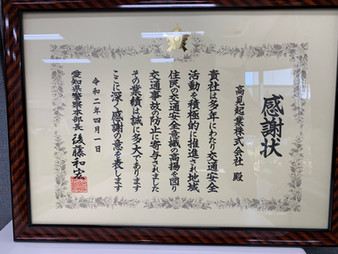 感謝状
高見起業株式会社 殿
貴社は多年にわたり交通安全
活動を積極的に推進され地域
住民の交通安全意識の高揚を図り
交通事故の防止に寄与されました
その業績は誠に多大であります
ここに深く感謝の意を表します
令和二年四月一日
愛知県警察本部長 後藤和宏